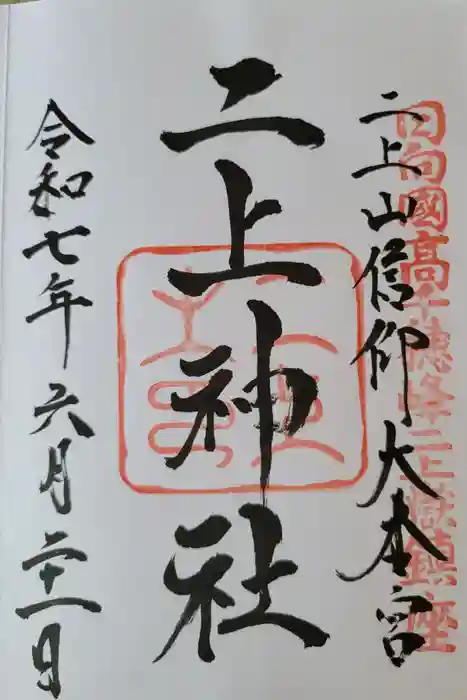 日向國高千穂峰二上嶽鎮座
二上山信仰大本宮
二上神社
令和七年六月二十一日